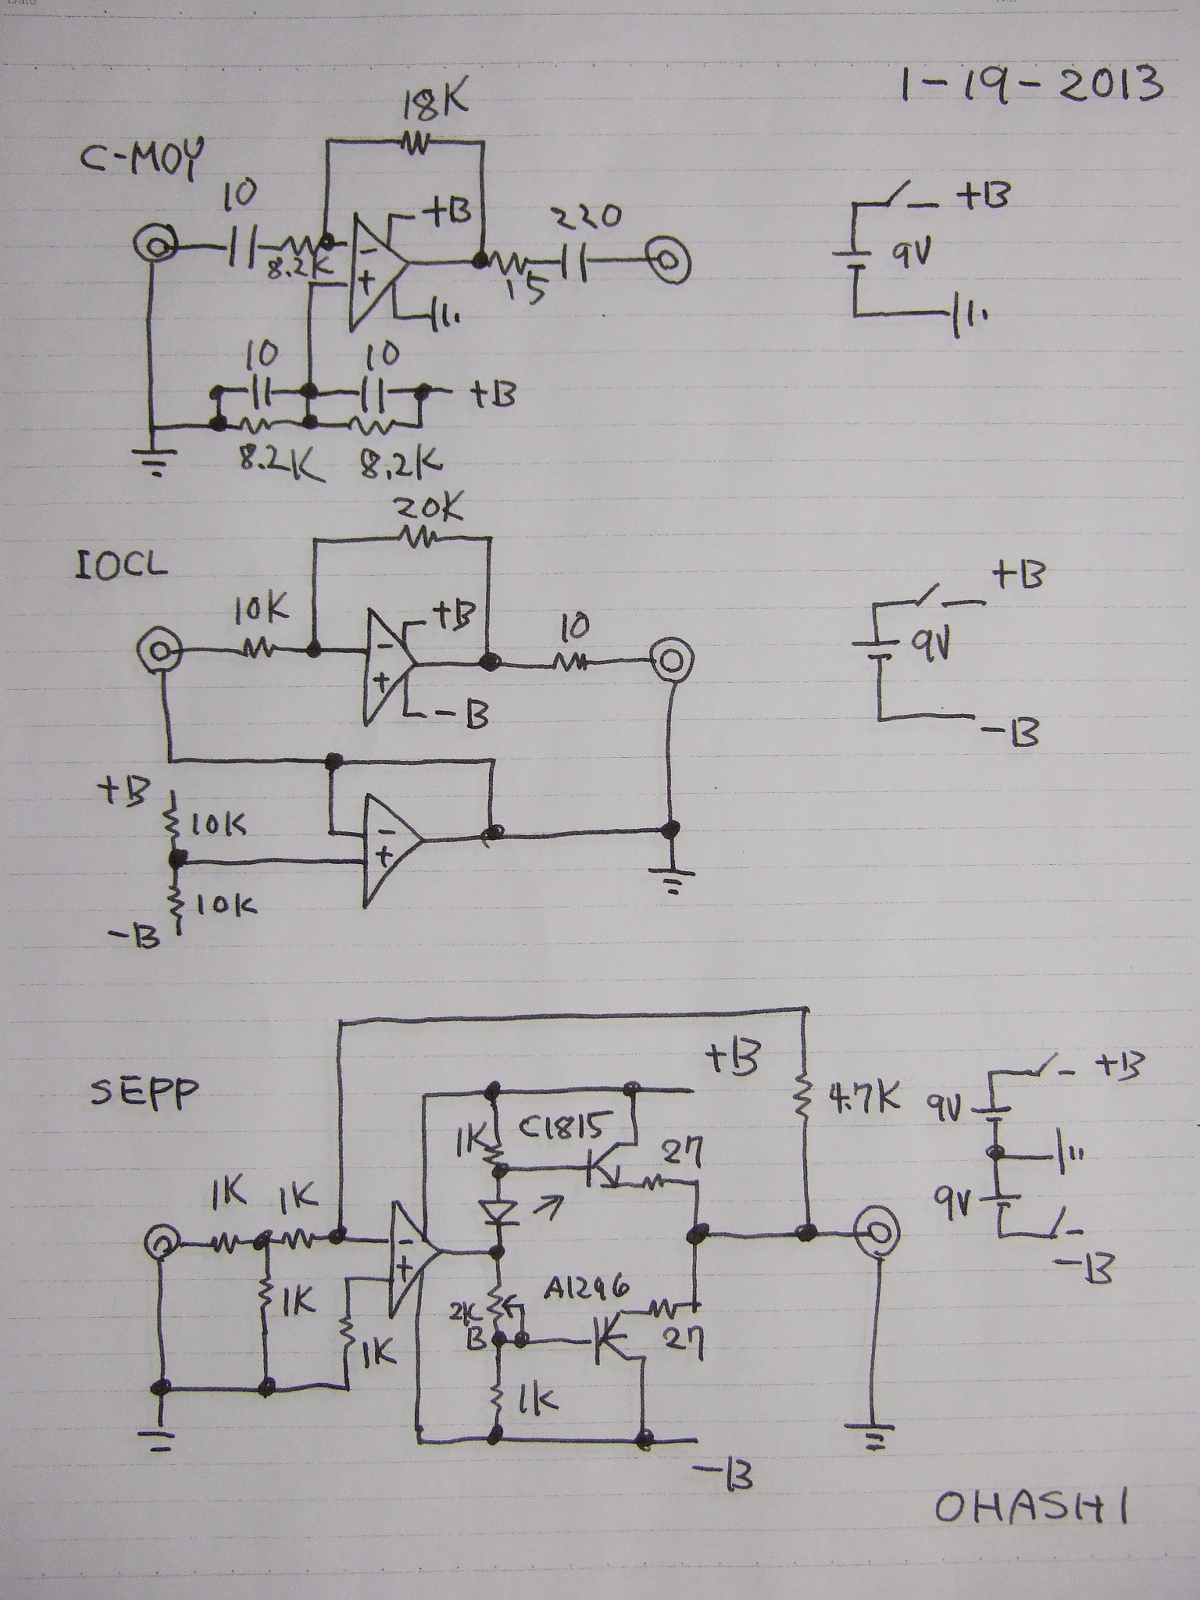 1-19-2013
C-MOY
18K
10
8.2K
-
+
+B
15
220
9V
+B
10
10
+B
8.2K
8.2K
IOCL
20K
10K
-
+
+B
-B
10
9V
+B
-B
+B
10K
10K
-B
-
+
SEPP
+B
4.7K
1K
C1815
27
1K
1K
-
+
1K
1K
2K
B
A1296
27
1K
-B
9V
+B
9V
-B
OHASHI